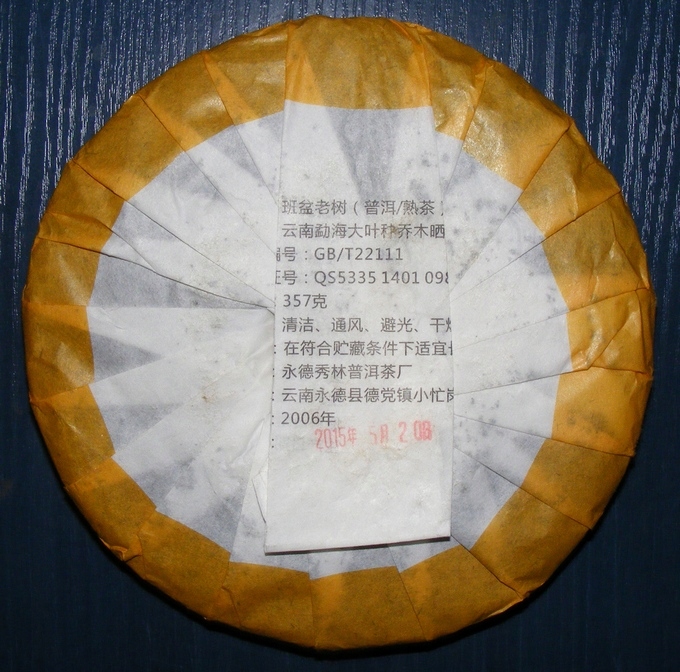 班盆老树（普洱/熟茶）
云南勐海大叶种乔木晒
编号：GB/T22111
证号：QS5335 1401 098
: 357克
清洁、通风、避光、干燥
: 在符合贮藏条件下适宜长
: 永德秀林普洱茶厂
: 云南永德县德党镇小忙岗
: 2006年
: 2015年 5月 2 0日